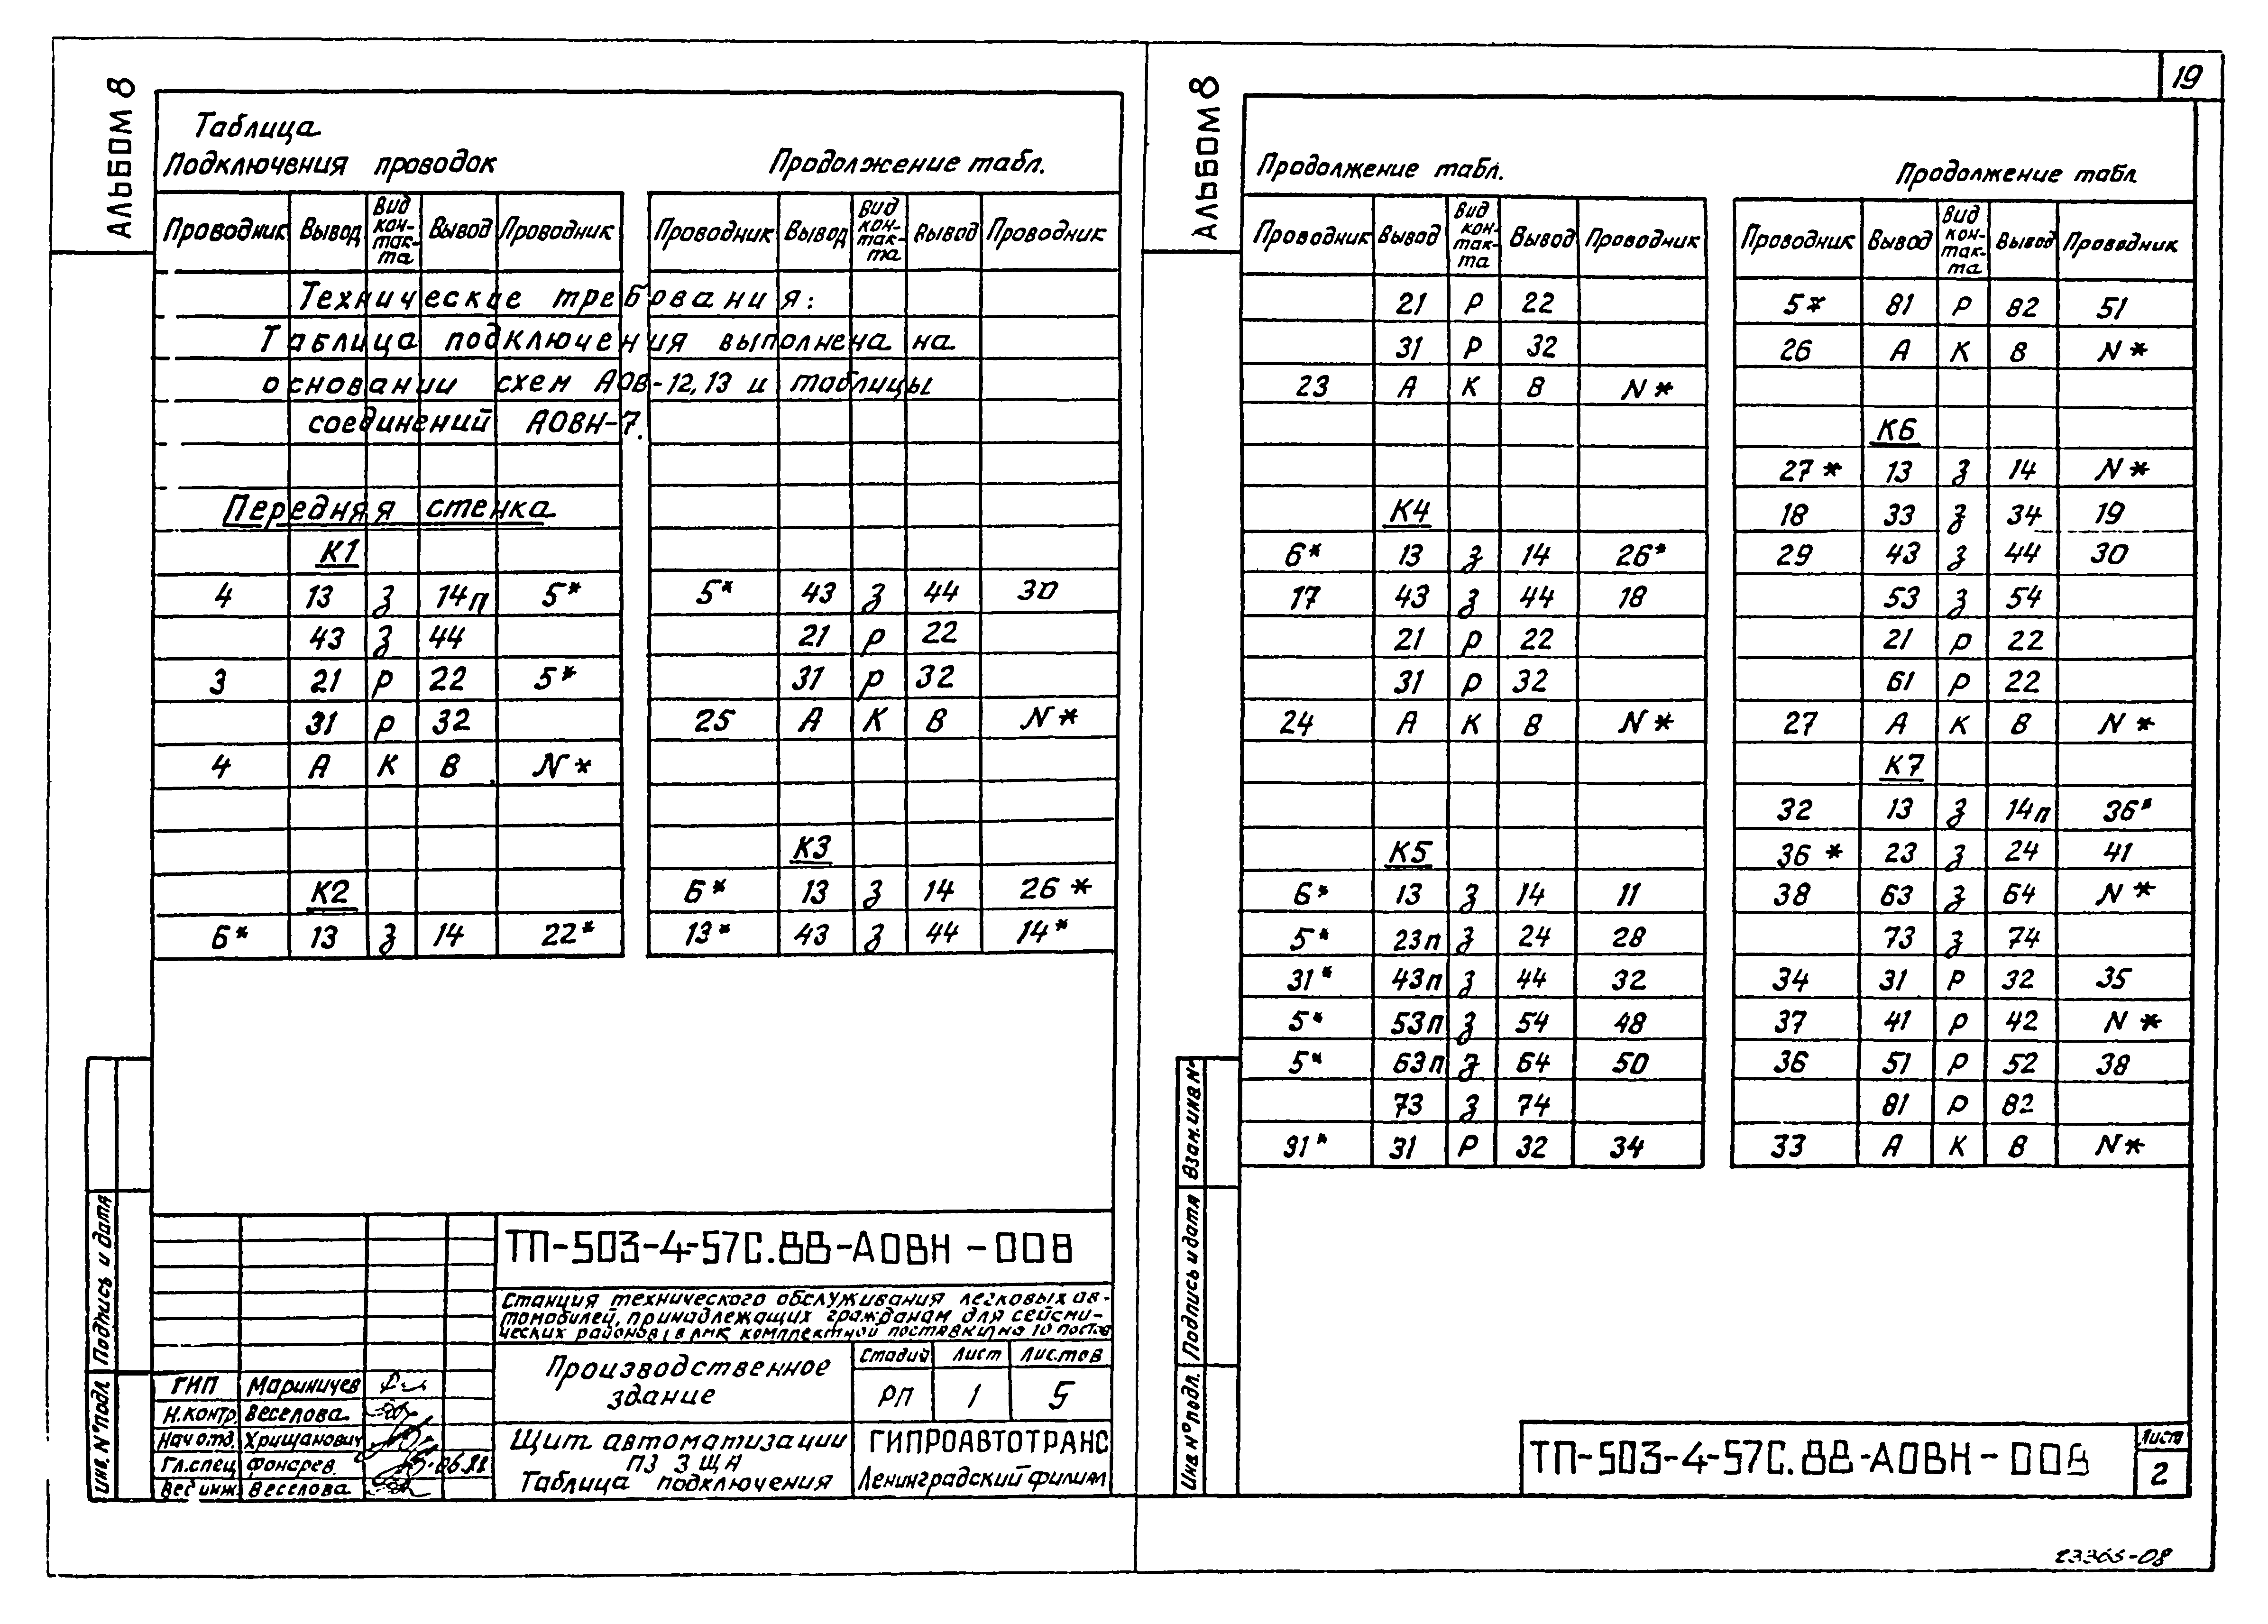 АЛЬБОМ 8
Таблица
Подключения проводок
Проводник Вывод Вид кон-так-та Вывод Проводник
Технические требования:
Таблица подключения выполнена на
основании схем АОВ-12,13 и таблицы
соединений АОВН-7.
Передняя стенка
К1
4 13 З 14п 5*
43 З 44
3 21 Р 22 5*
31 Р 32
4 А К В N*
К2
6* 13 З 14 22*
Продолжение табл.
Проводник Вывод Вид кон-так-та Вывод Проводник
5* 43 З 44 30
21 Р 22
31 Р 32
25 А К В N*
К3
6* 13 З 14 26*
13* 43 З 44 14*
Подпись и дата
Инв. N° подл.
ТП-503-4-57С.88-АОВН-008
Станция технического обслуживания легковых ав-
томобилей, принадлежащих гражданам для сейсми-
ческих районов (в ЛМК комплектной поставки) на 10 постов
Производственное
здание
Стадия Лист Листов
РП 1 5
ГИП Мариничев
Н.контр. Веселова
Нач отд. Хрищанович
Гл.спец Фонарев 06.88
Вед инж. Веселова
Щит автоматизации
ПЗ ЗЩА
Таблица подключения
ГИПРОАВТОТРАНС
Ленинградский филиал
19
АЛЬБОМ 8
Продолжение табл.
Проводник Вывод Вид кон-так-та Вывод Проводник
21 Р 22
31 Р 32
23 А К В N*
К4
6* 13 З 14 26*
17 43 З 44 18
21 Р 22
31 Р 32
24 А К В N*
К5
6* 13 З 14 11
5* 23п З 24 28
31* 43п З 44 32
5* 53п З 54 48
5* 63п З 64 50
73 З 74
31* 31 Р 32 34
Продолжение табл
Проводник Вывод Вид кон-так-та Вывод Проводник
5* 81 Р 82 51
26 А К В N*
К6
27* 13 З 14 N*
18 33 З 34 19
29 43 З 44 30
53 З 54
21 Р 22
61 Р 22
27 А К В N*
К7
32 13 З 14п 36*
36* 23 З 24 41
38 63 З 64 N*
73 З 74
34 31 Р 32 35
37 41 Р 42 N*
36 51 Р 52 38
81 Р 82
33 А К В N*
Взам. инв N°
Подпись и дата
Инв N° подл.
ТП-503-4-57С.88-АОВН-008
Лист
2
23365-08